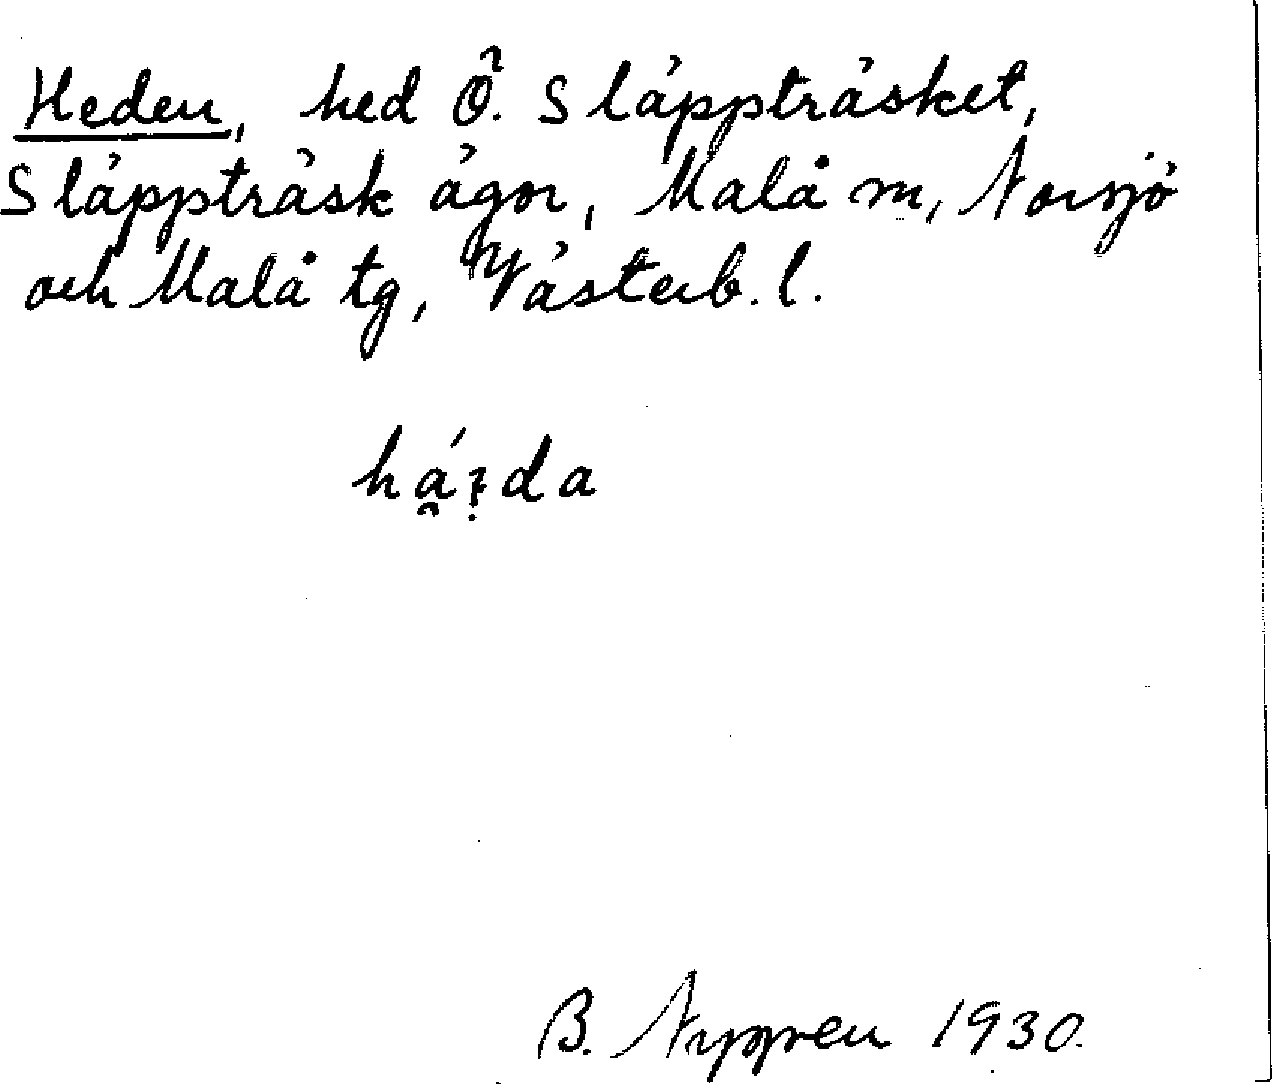 Heden, hed Ö. Släppträsket,
Släppträsk ägor, Malå sn, Norsjö
och Malå tg, Västerb. l.
B. Nygren 1930.